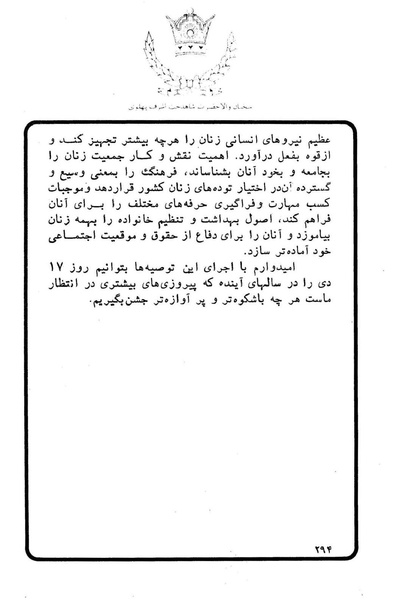 سخنان والاحضرت شاهدخت اشرف پهلوی
عظیم نیروهای انسانی زنان را هرچه بیشتر تجهیز کند و
ازقوه بفعل درآورد. اهمیت نقش و کار جمعیت زنان را
بجامعه و بخود آنان بشناساند، فرهنگ را بمعنی وسیع و
گسترده آن در اختیار توده‌های زنان کشور قراردهد وموجبات
کسب مهارت وفراگیری حرفه‌های مختلف را برای آنان
فراهم کند، اصول بهداشت و تنظیم خانواده را بهمه زنان
بیاموزد و آنان را برای دفاع از حقوق و موقعیت اجتماعی
خود آماده‌تر سازد.
امیدوارم با اجرای این توصیه‌ها بتوانیم روز ۱۷
دی را در سالهای آینده که پیروزی‌های بیشتری در انتظار
ماست هر چه باشکوه‌تر و پر آوازه‌تر جشن‌بگیریم.
۲۹۴